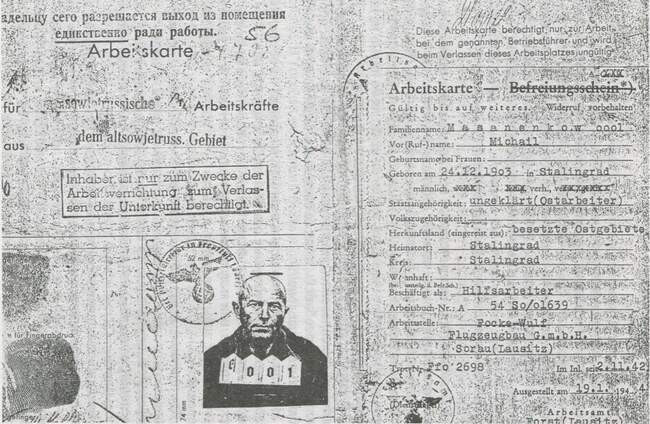 сего разрешается выход из помещения
единственно ради работы.
56
Arbeitskarte
für
"sowjetrussische" Arbeitskräfte
aus dem altsowjetruss. Gebiet
Inhaber ist nur zum Zwecke der
Arbeitsverrichtung zum Verlas-
sen der Unterkunft berechtigt.
52 mm
74 mm
Fingerabdruck
0 0 1
Diese Arbeitskarte berechtigt nur zur Arbeit
bei dem genannten Betriebsführer und wird
beim Verlassen dieses Arbeitsplatzes ungültig.
Arbeitskarte — Befreiungsschein
Gültig bis auf weiteres. Widerruf vorbehalten
Familienname: Masanenkow
Vor(Ruf-)name: Michail
Geburtsname bei Frauen:
Geboren am 24.12.1903 in Stalingrad
männlich, xxx xxx verh.,
Staatsangehörigkeit: ungeklärt(Ostarbeiter)
Volkszugehörigkeit:
Herkunftsland (eingereist aus): besetzte Ostgebiete
Heimatort: Stalingrad
Kreis: Stalingrad
Beschäftigt als: Hilfsarbeiter
Arbeitsbuch-Nr.: A 54 So/01639
Arbeitsstelle: Focke-Wulf
Flugzeugbau G.m.b.H.
Sorau(Lausitz)
2698
Im Inl. seit
Ausgestellt am 19.1. 194
Arbeitsamt
Forst(Lausitz)